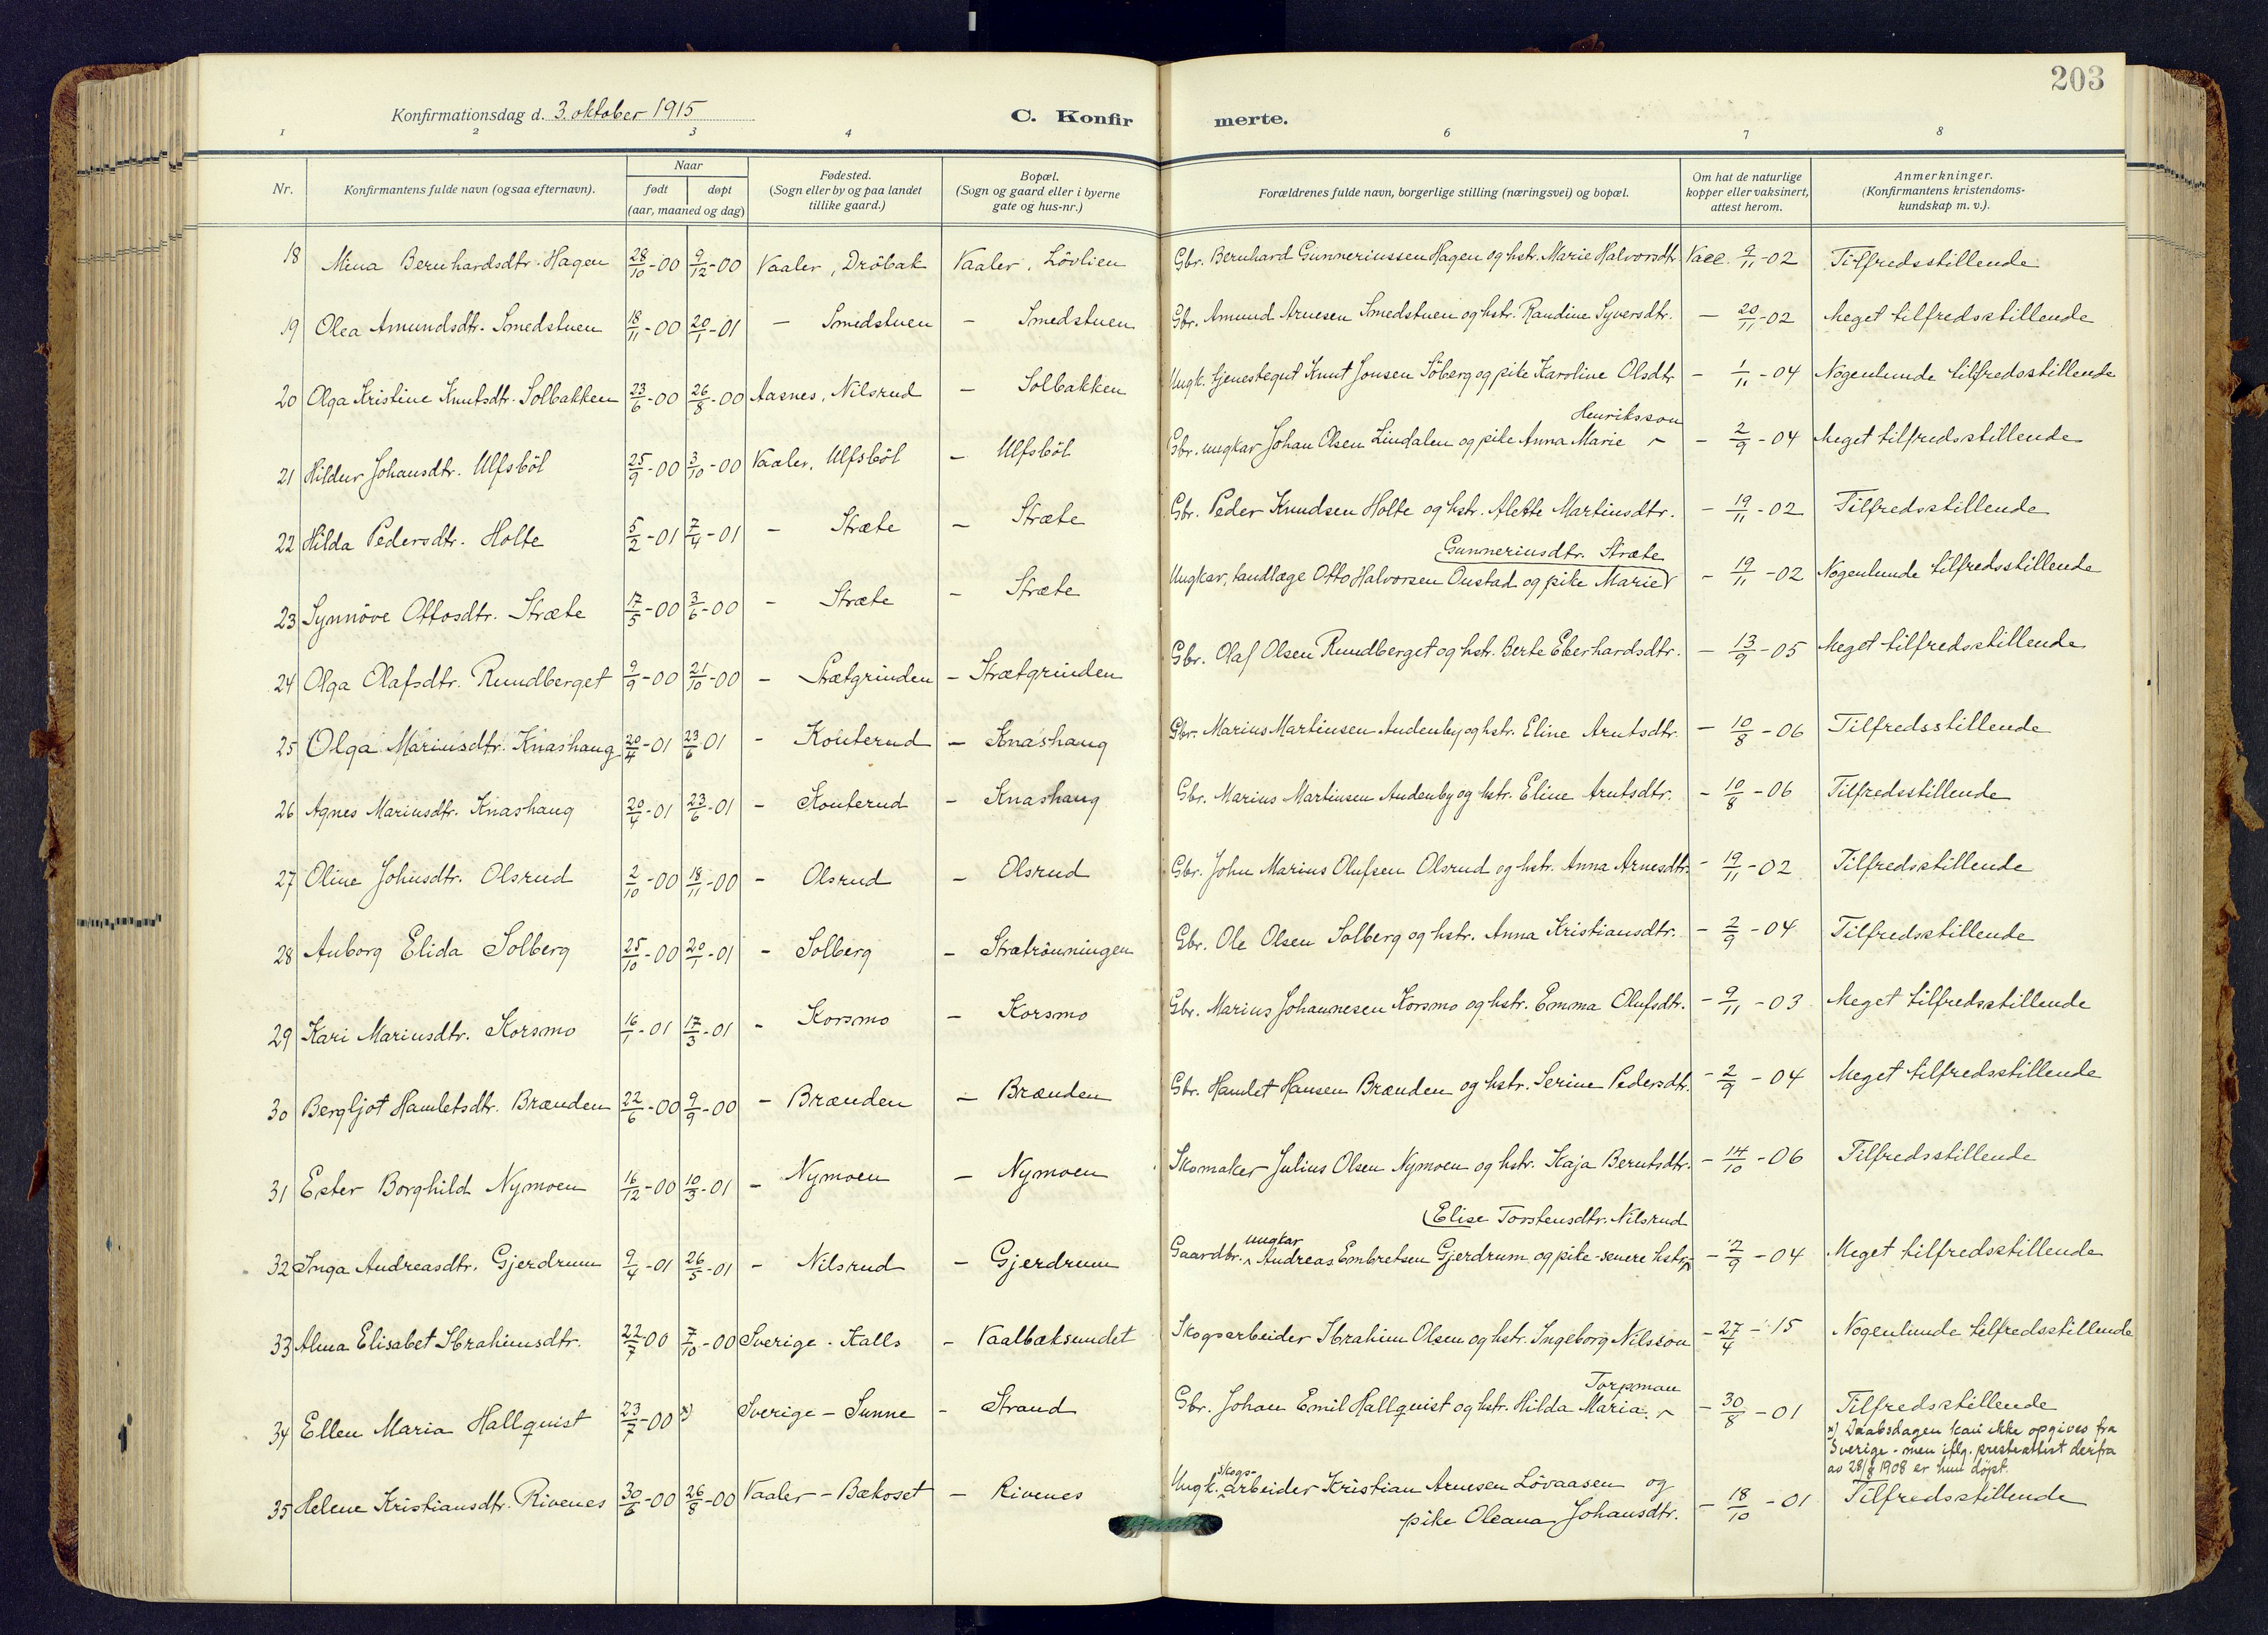 203
Konfirmationsdag d. 3. oktober 1915
C. Konfirmerte.
1 2 3 4 6 7 8
Nr.
Konfirmantens fulde navn (ogsaa efternavn).
Naar
født døpt
(aar, maaned og dag)
Fødested.
(Sogn eller by og paa landet
tillike gaard.)
Bopæl.
(Sogn og gaard eller i byerne
gate og hus-nr.)
Forældrenes fulde navn, borgerlige stilling (næringsvei) og bopæl.
Om hat de naturlige
kopper eller vaksinert,
attest herom.
Anmerkninger.
(Konfirmantens kristendoms-
kundskap m. v.).
18 Mina Bernhardsdtr. Hagen 28/10-00 9/12-00 Vaaler, Dröbak Vaaler, Lövlien Gbr. Bernhard Gunneriussen Hagen og hstr. Marie Halvorsdtr. Vacc. 9/11-02 Tilfredsstillende
19 Olea Amundsdtr. Smedstuen 18/11-00 20/1-01 - Smedstuen - Smedstuen Gbr. Amund Arnesen Smedstuen og hstr. Randine Syversdtr. - 20/11-02 Meget tilfredsstillende
20 Olga Kristine Knutsdtr. Solbakken 23/6-00 26/8-00 Aasnes, Nilsrud - Solbakken Ungk. tjenestegut Knut Jonsen Söberg og pike Karoline Olsdtr. - 1/11-04 Nogenlunde tilfredsstillende
Henriksson
21 Hildur Johansdtr. Ulfsböl 25/9-00 3/10-00 Vaaler, Ulfsböl - Ulfsböl Gbr. ungkar Johan Olsen Lindalen og pike Anna Marie - 2/9-04 Meget tilfredsstillende
22 Hilda Pedersdtr. Holte 5/2-01 7/4-01 - Stræte - Stræte Gbr. Peder Knudsen Holte og hstr. Alette Martinsdtr. - 19/11-02 Tilfredsstillende
Gunneriusdtr. Stræte
23 Synnöve Ottosdtr. Stræte 17/5-00 3/6-00 - Stræte - Stræte Ungkar, tandlæge Otto Halvorsen Onstad og pike Marie - 19/11-02 Nogenlunde tilfredsstillende
24 Olga Olafsdtr. Rundberget 9/9-00 21/10-00 - Strætgrinden - Strætgrinden Gbr. Olaf Olsen Rundberget og hstr. Berte Eberhardsdtr. - 13/9-05 Meget tilfredsstillende
25 Olga Mariusdtr. Knashaug 20/4-01 23/6 01 - Konterud - Knashaug Gbr. Marius Martinsen Audenby og hstr. Eline Arntsdtr. - 10/8-06 Tilfredsstillende
26 Agnes Mariusdtr. Knashaug 20/4-01 23/6-01 - Konterud - Knashaug Gbr. Marius Martinsen Audenby og hstr. Eline Arntsdtr. - 10/8-06 Tilfredsstillende
27 Oline Johnsdtr. Olsrud 2/10-00 18/11-00 - Olsrud - Olsrud Gbr. John Marius Olufsen Olsrud og hstr. Anna Arnesdtr. - 19/11-02 Tilfredsstillende
28 Anborg Elida Solberg 25/10-00 20/1-01 - Solberg - Strætrönningen Gbr. Ole Olsen Solberg og hstr. Anna Kristiansdtr. - 2/9-04 Tilfredsstillende
29 Kari Mariusdtr. Korsmo 16/1-01 17/3-01 - Korsmo - Korsmo Gbr. Marius Johannesen Korsmo og hstr. Emma Olufsdtr. - 9/11-03 Meget tilfredsstillende
30 Bergljot Hamletsdtr. Brænden 22/6-00 9/9-00 - Brænden - Brænden Gbr. Hamlet Hansen Brænden og hstr. Serine Pedersdtr. - 2/9-04 Meget tilfredsstillende
31 Ester Borghild Nymoen 16/12-00 10/3-01 - Nymoen - Nymoen Skomaker Julius Olsen Nymoen og hstr. Kaja Berntsdtr. - 14/10-06 Tilfredsstillende
Elise Torstensdtr. Nilsrud
32 Inga Andreasdtr. Gjerdrum 9/4-01 26/5-01 - Nilsrud - Gjerdrum Gaardbr. ungkar Andreas Embretsen Gjerdrum og pike - senere hstr. - 2/9-04 Meget tilfredsstillende
33 Alma Elisabet Ibrahimsdtr. 22/7-00 7/10-00 Sverige - Kalls - Vaalbæksundet Skogsarbeider Ibrahim Olsen og hstr. Ingeborg Nilsson - 27/4-15 Nogenlunde tilfredsstillende
Torpman
34 Ellen Maria Hallquist 23/7-00 x) Sverige - Sunne - Strand Gbr. Johan Emil Hallquist og hstr. Hilda Maria. - 30/8-01 Tilfredsstillende
x) Daabsdagen kan ikke opgives fra
Sverige - men iflg. presteattest derfra
av 28/8 1908 er hun döpt.
35 Helene Kristiansdtr. Rivenes 30/6-00 26/8-00 Vaaler - Bækoset - Rivenes Ungk. skogs-arbeider Kristian Arnesen Lövaasen og
pike Oleana Johansdtr. - 18/10-01 Tilfredsstillende